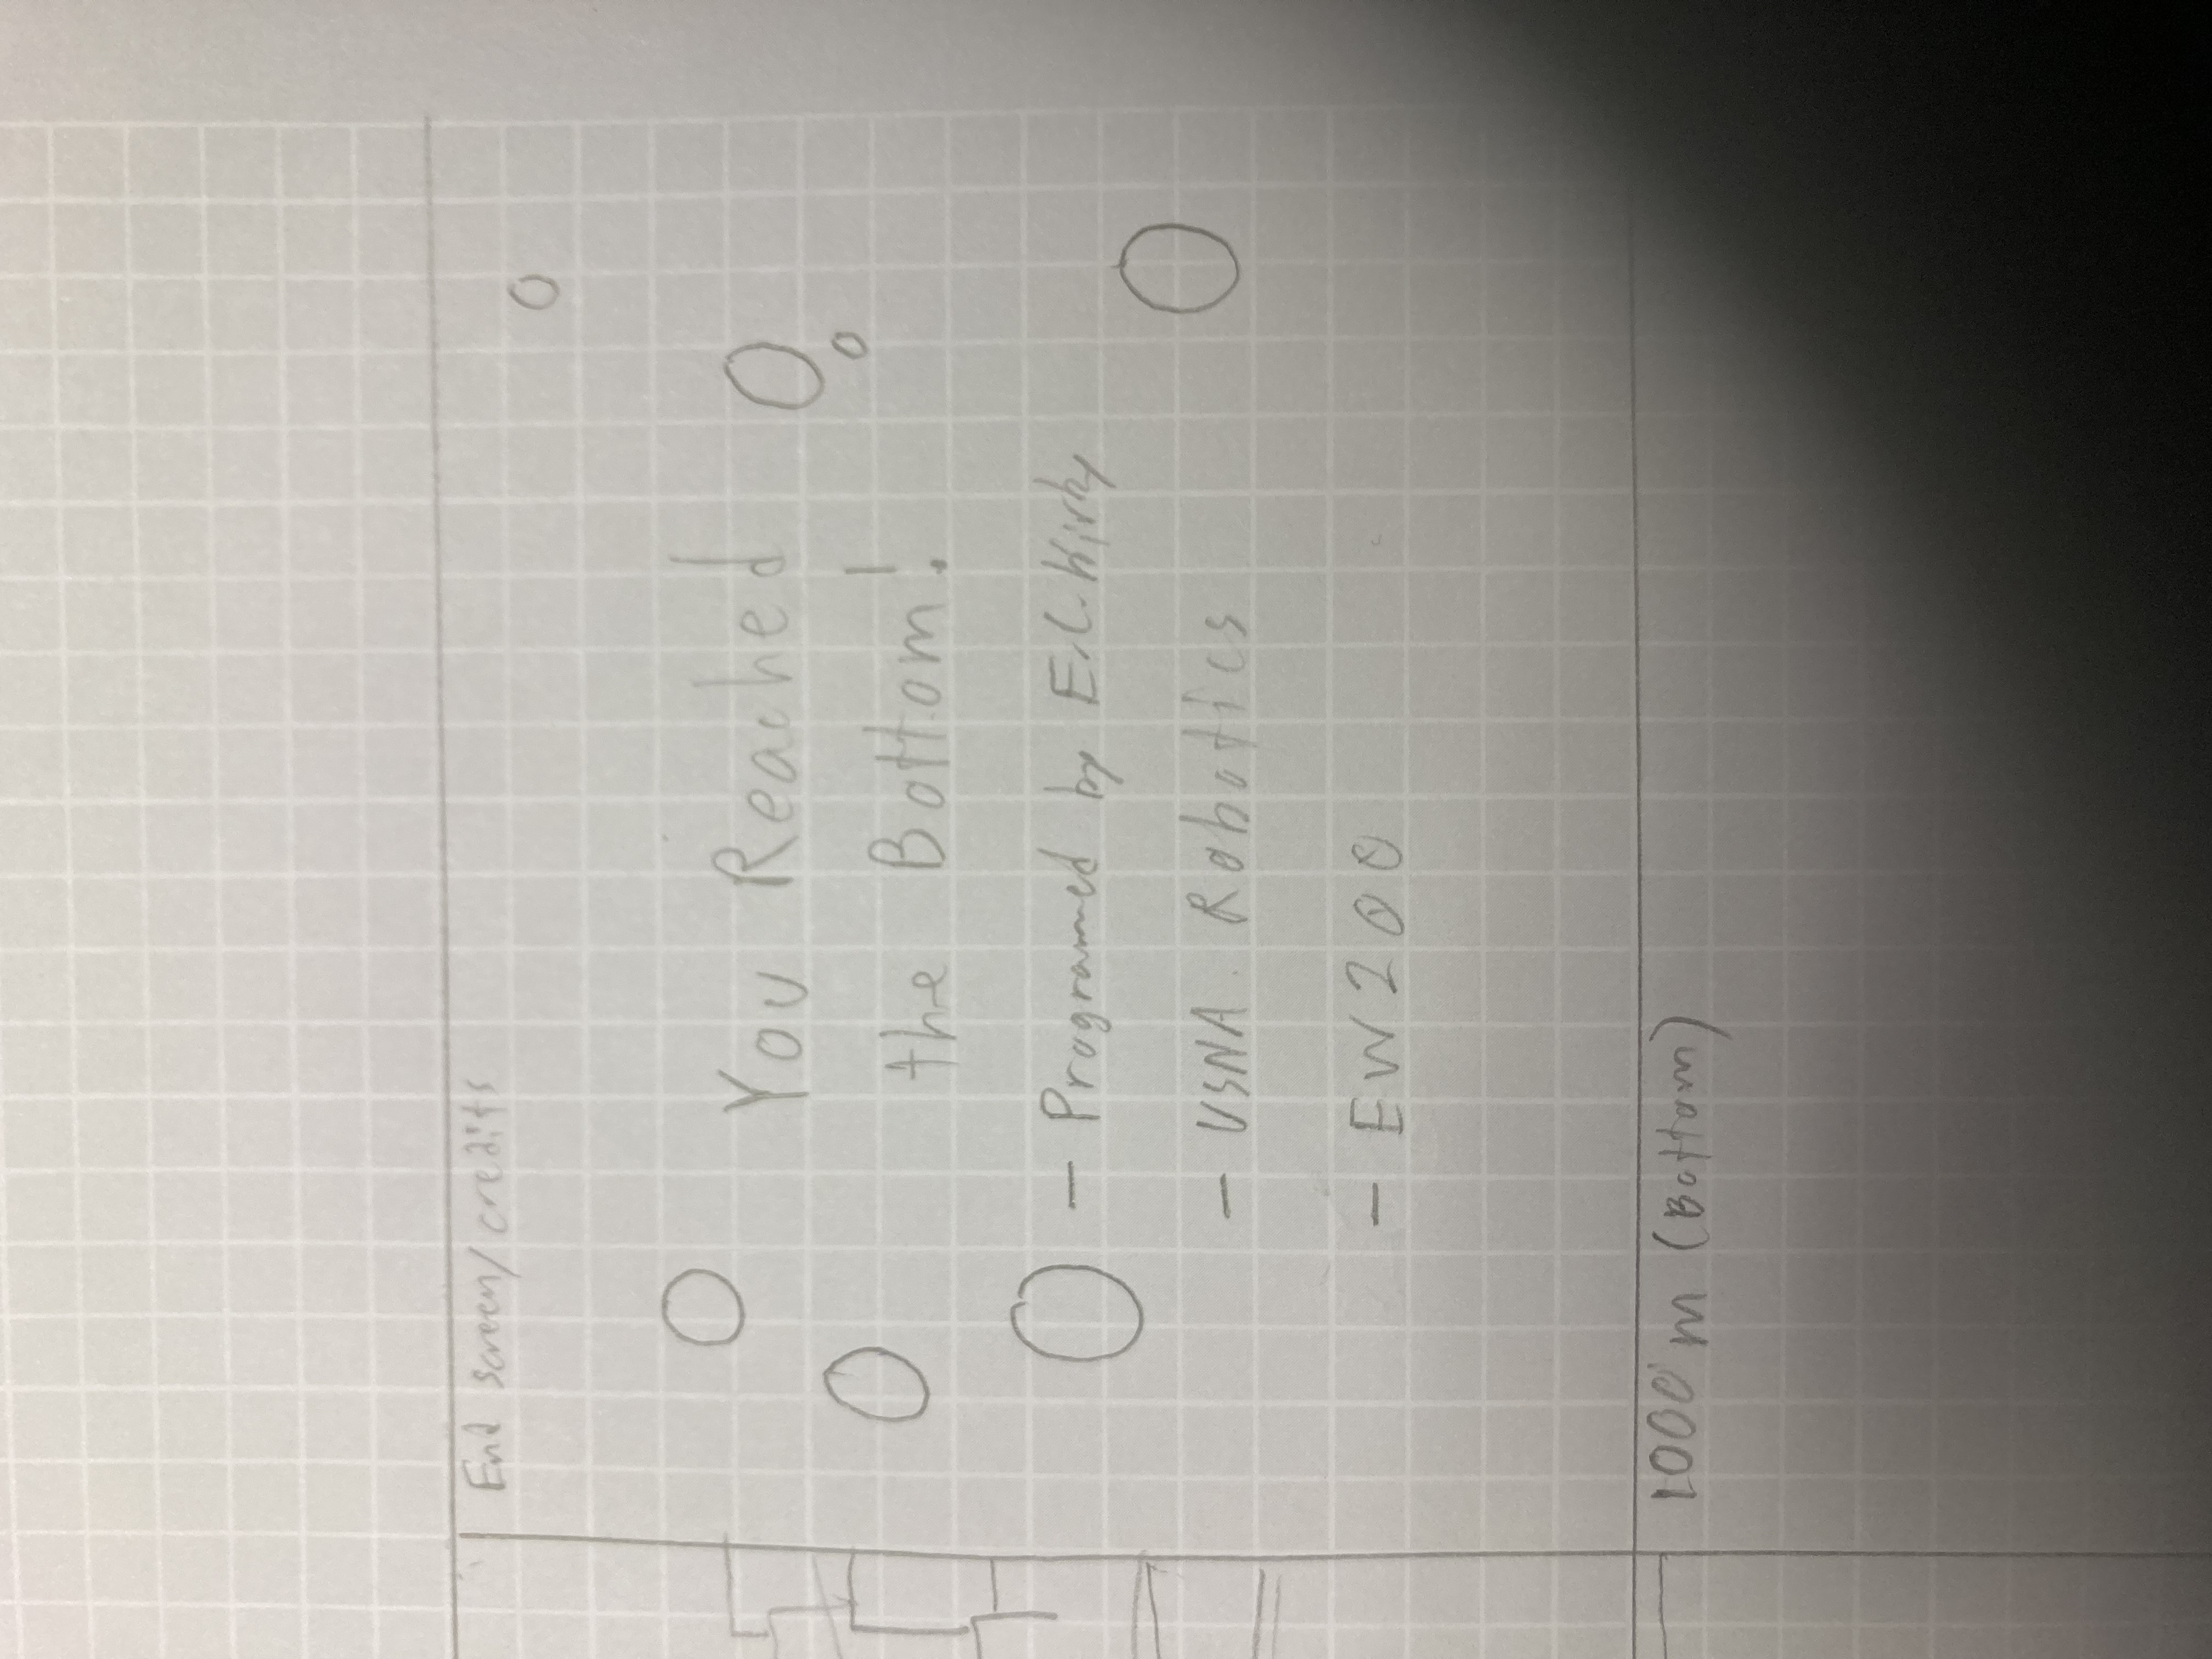 End screen/credits
You Reached
the Bottom!
- Programmed by E.C. Kirby
- USNA Robotics
- EW200
1000 m (Bottom)